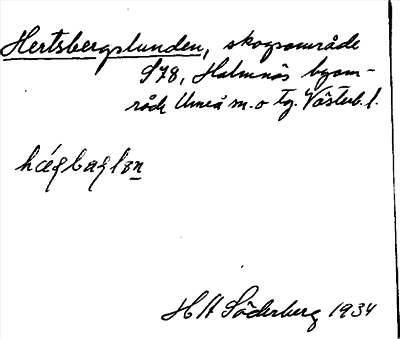 Hertsbergslunden, skogsområde
S78, Holmnäs byom-
råde Umeå m. o tg. Västerb. l.
hǽſbagløn
H H Söderberg 1934